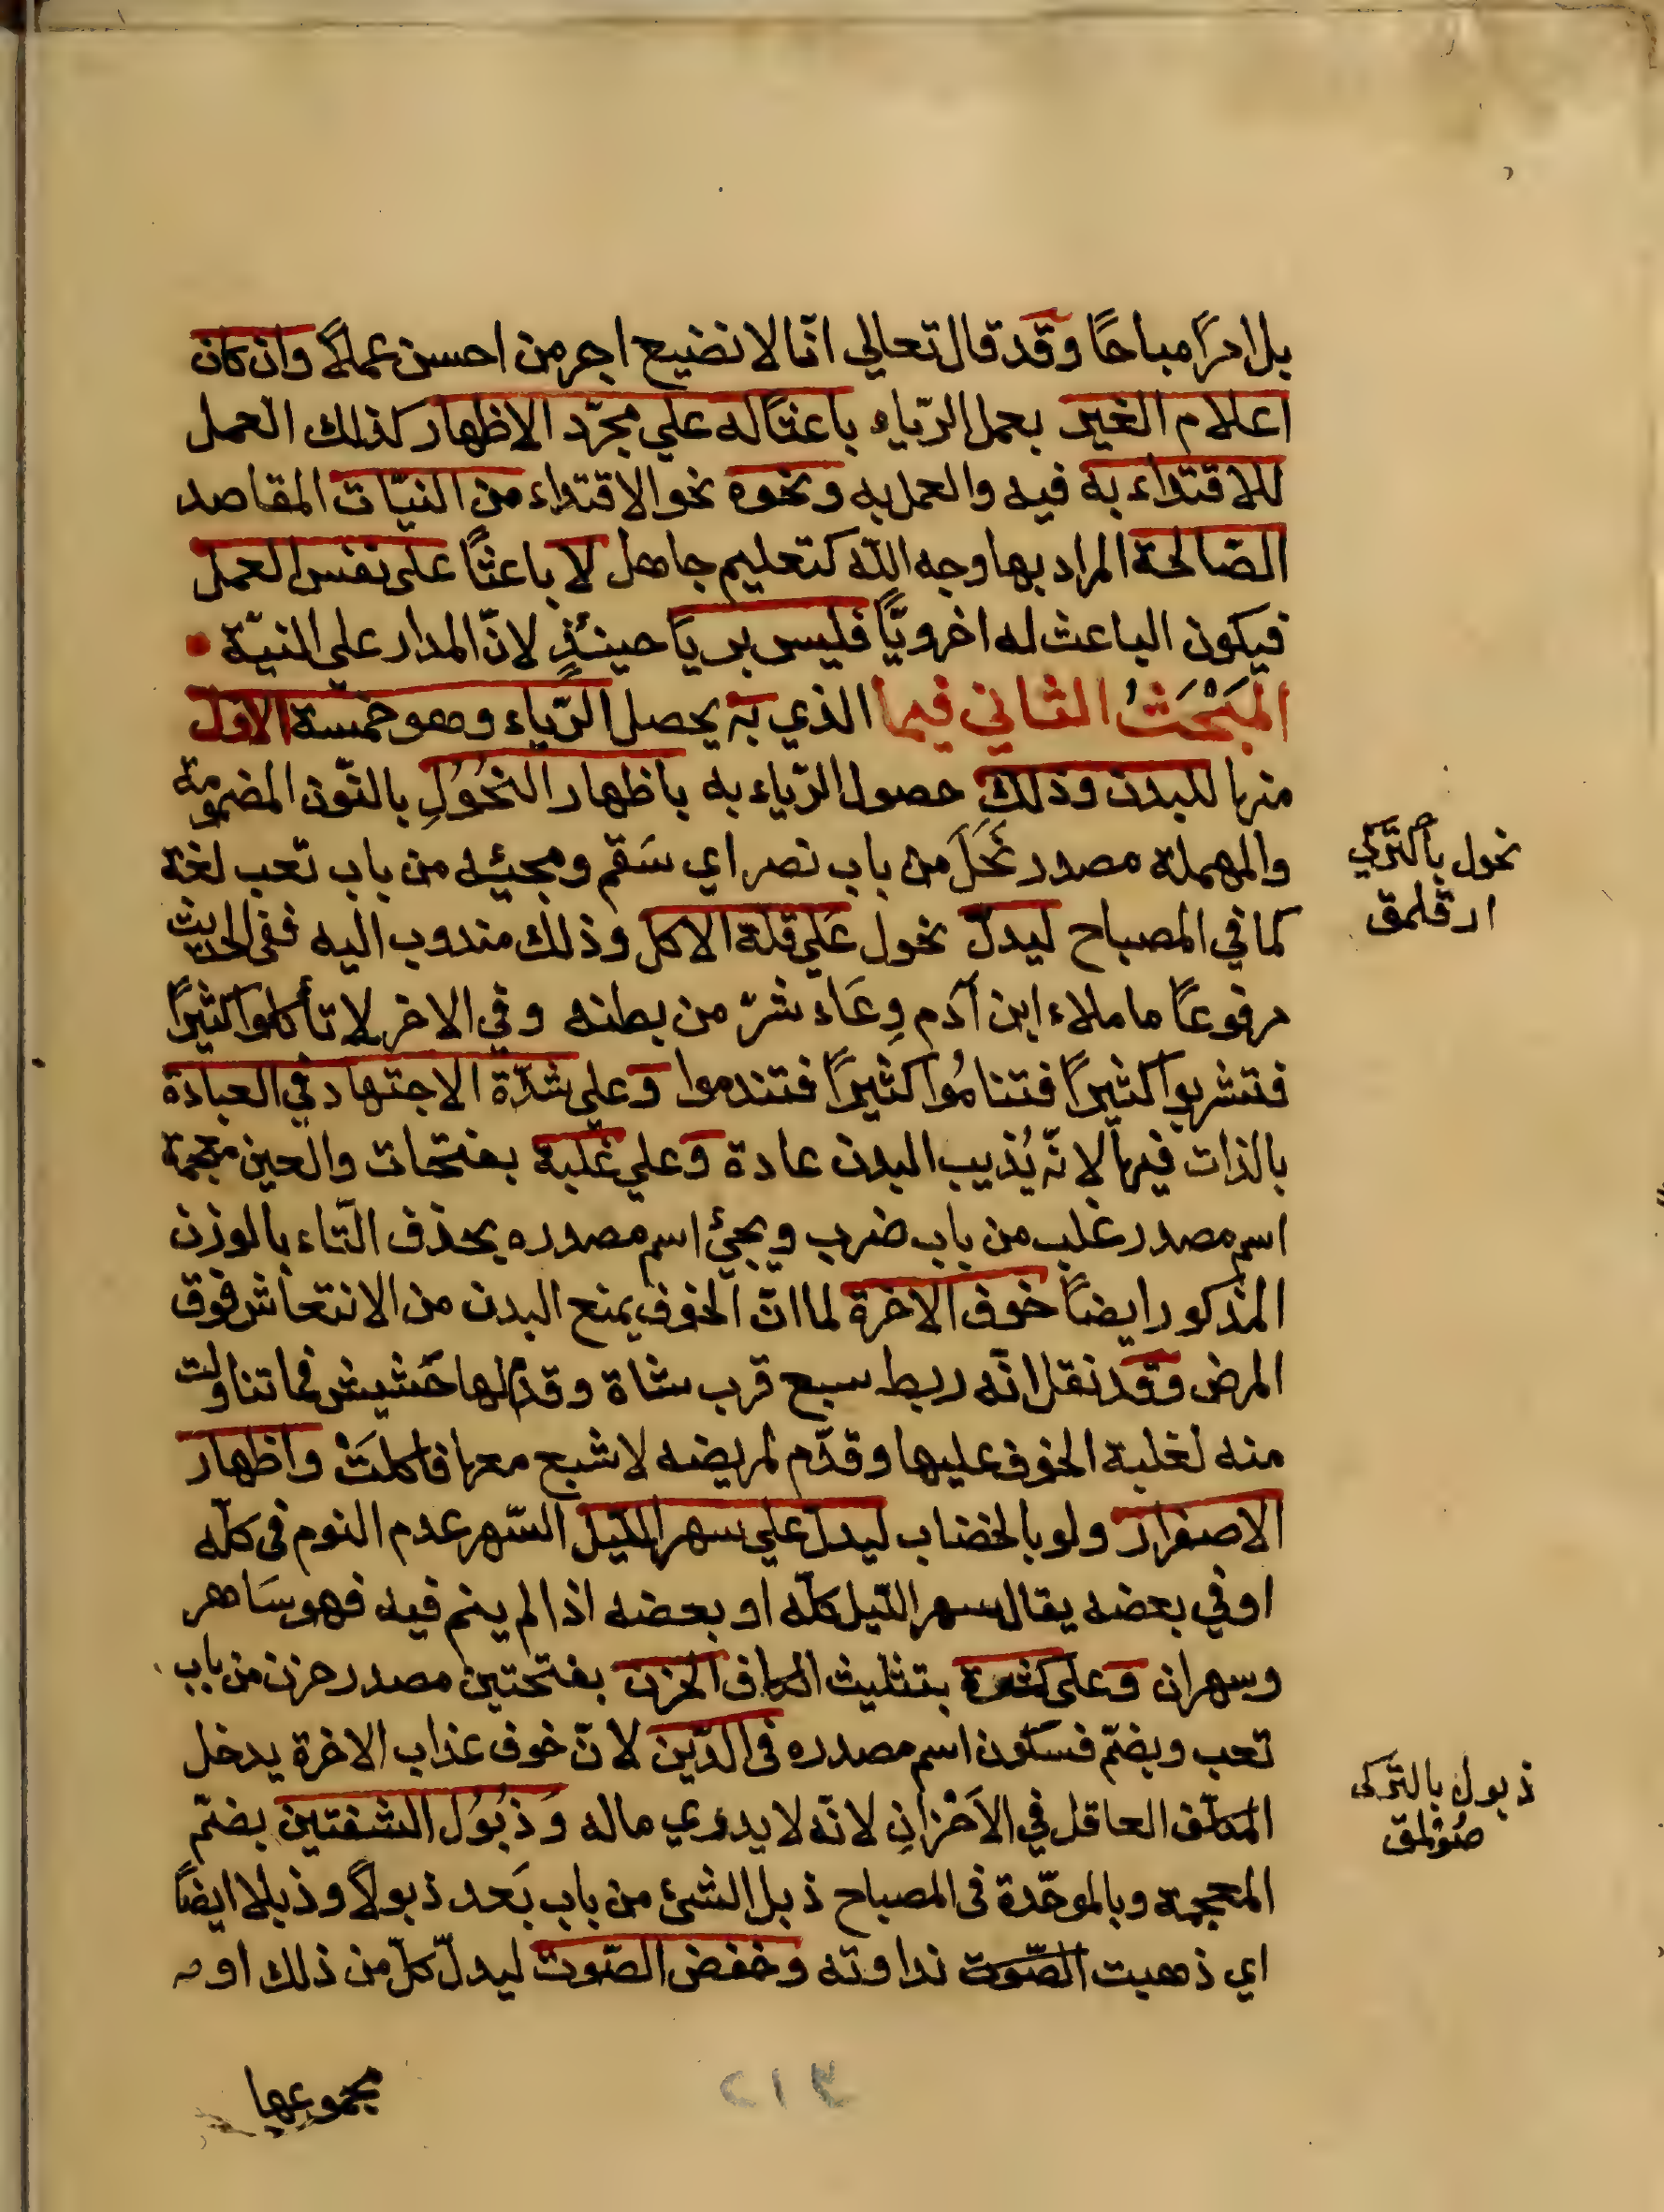 بل امرًا مباحًا وقد قال تعالي انّا لا نضيع اجر من احسن عملًا وان كان
اعلام الغير بعمل الرّياء باعثًا له علي مجرّد الاظهار كذلك العمل
للاقتداء به فيه والعمل به ونحوه نحو الاقتداء من النيّات المقاصد
الصّالحة المراد بها وجه اللّه كتعليم جاهل لا باعثًا على نفس العمل
فيكون الباعث له اخرويًّا فليس برياً حينئذٍ لانّ المدار علي النيّة
المَبْحَثُ الثاني فيما الذي به يحصل الرّياء وهو خمسة الاوّل
منها للبدن وذلك حصول الرّياء به باظهار النُحُولِ بالنّون المضمومة
والمهملة مصدر نَحَلَ من باب نصر اي سَقم ومجيئه من باب تعب لغة
كما في المصباح ليدلّ نحول علي قلة الاكل وذلك مندوب اليه ففى الحديث
مرفوعًا ما ملاء ابن آدم وِعَاء شرّ من بطنه وفي الاخر لا تأكلوا كثيرًا
فتشربوا كثيرًا فتنامُوا كثيرًا فتندموا وعلي شدّة الاجتهاد في العبادة
بالذات فيها لانّه يُذيب البدن عادة وعلي غلبة بفتحات والغين معجمة
اسم مصدر غلب من باب ضرب ويجئ اسم مصدره بحذف التّاء بالوزن
المذكور ايضاً خوف الاخرة لما انّ الخوف يمنع البدن من الانتعاش فوق
المرض وقد نقل انّه ربط سبع قرب شاة وقدّم لها حَشيش فما تناولت
منه لغلبة الخوف عليها وقدّم لمريضه لا شبع معها فاكلَتْ واظهار
الاصفرار ولو بالخضاب ليدلّ علي سهر اللّيل السّهر عدم النوم فى كلّه
او في بعضه يقال سهر اللّيل كلّه او بعضه اذا لم ينم فيه فهو سَاهر
وسهران وعلى كثرة بتثليث الكاف الحزن بفتحتين مصدر حزن من باب
تعب وبضمّ فسكون اسم مصدره فى الدّين لانّ خوف عذاب الاخرة يدخل
المكلّف العاقل في الاَحْزانِ لانّه لا يدري ماله وَذُبُوُل الشفتين بضمّ
المعجمة وبالموحّدة فى المصباح ذبل الشئ من باب بَعد ذبولاً وذبلا ايضاً
اي ذهبت الصّوت نداوته وخفض الصّوت ليدلّ كلّ من ذلك او
مجموعها
نحول بالتركي
ارقلمق
ذبول بالتركى
صُولمق